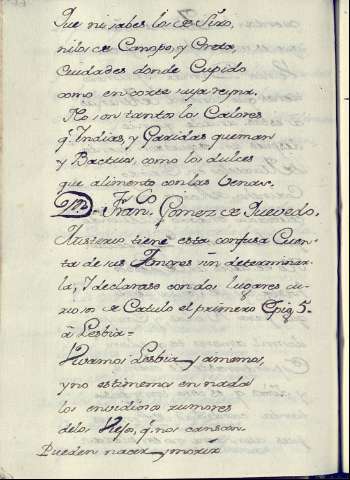 Que ni sabes los de Tiro,
ni los de Canopo, y Creta,
Ciudades donde Cupido
como en corte suya reyna.
No son tantos los Calores
q. Indias, y Garidas queman
y Bactros, como los dulces
que alimento con las Venas.
D. Franco. Gomez de Quevedo.
Misterio tiene esta confusa Cuen-
ta de sus Amores sin determinar-
la, y declarase con dos lugares cu-
riosos de Catulo el primero Epig. 5.
à Lesbia=
Vivamos Lesbia, y amemos,
y no estimemos en nada
los envidiosos rumores
de los Viejos, q. nos cansan.
Pueden nacer, y morir